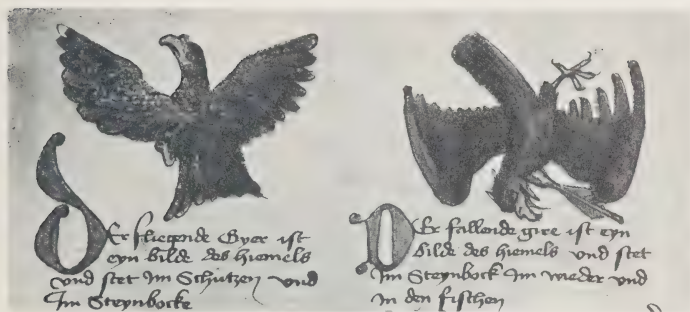 Der fliegende Gyer ist
eyn bilde des hiemels
vnd stet Im Schutzen vnd
Im Steynbocke
Der fallende gire ist eyn
bilde des hiemels vnd stet
Im Steynbock Im wieder vnd
In den fischen